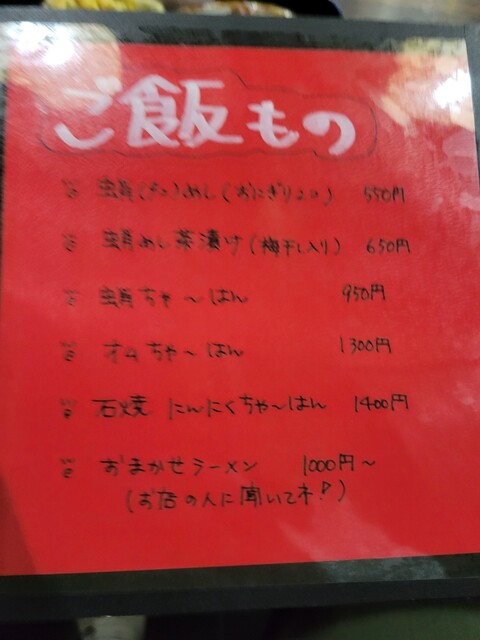 ご飯もの
蛸(タコ)めし(おにぎり2コ) 550円
蛸めし茶漬け(梅干し入り) 650円
蛸ちゃ〜はん 950円
オムちゃ〜はん 1300円
石焼 にんにくちゃ〜はん 1400円
おまかせラーメン 1000円〜
(お店の人に聞いてネ!)